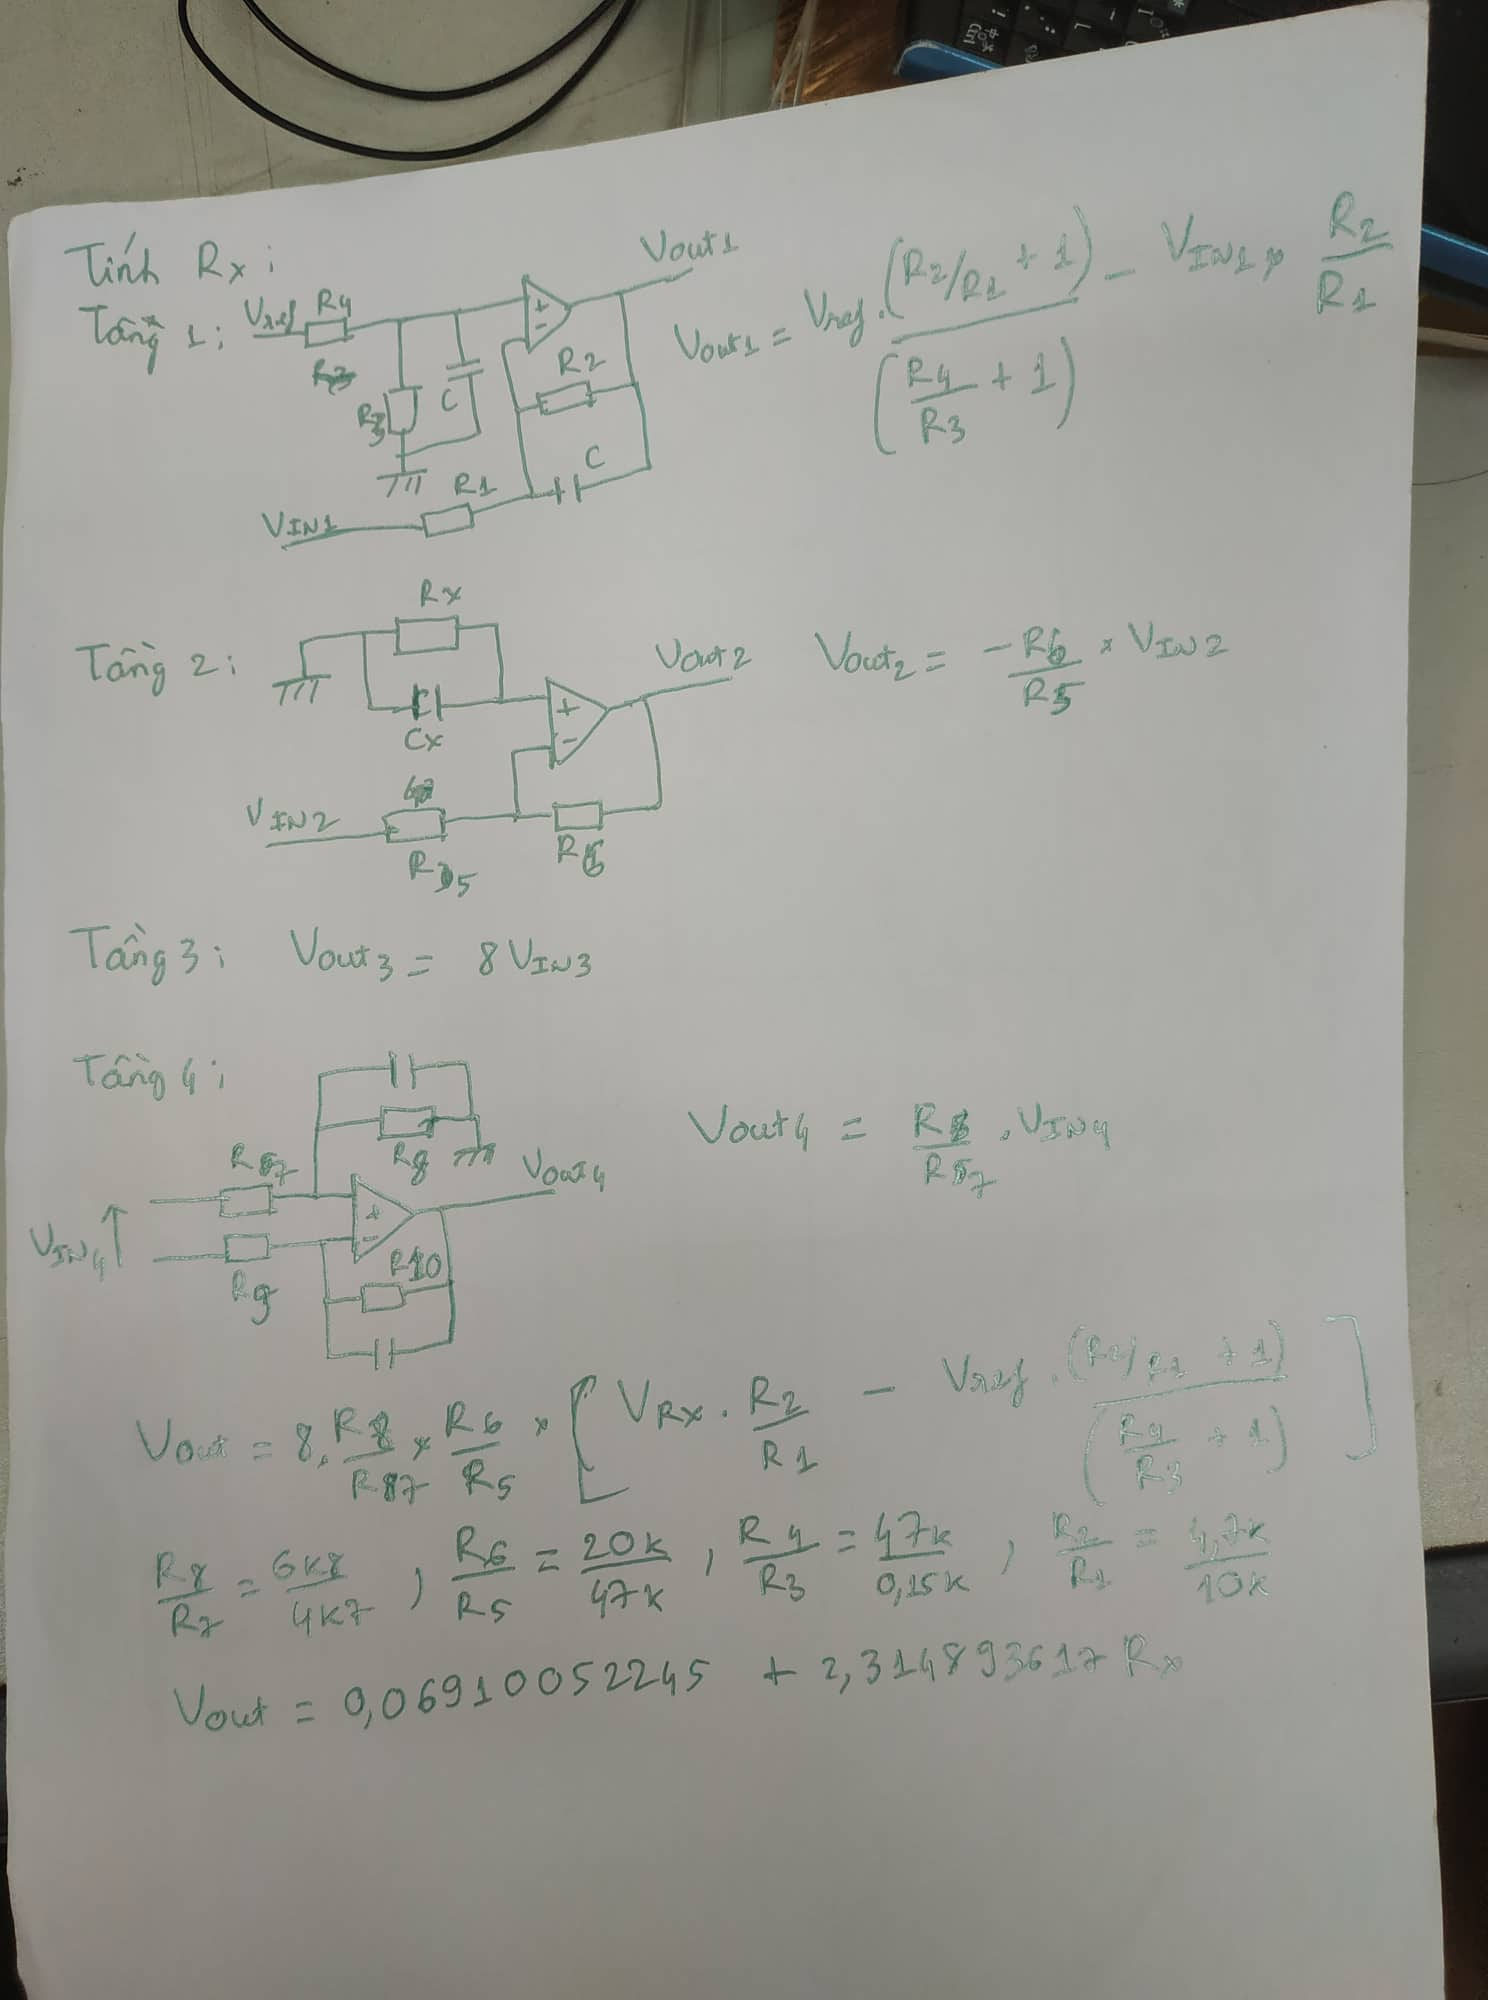 Tính Rx:
Tầng 1:
Vref R4
Vout1
R3
C
R2
C
R1
VIN1
Vout1 = Vref . (R2/R1 + 1) / (R4/R3 + 1) - VIN1 × R2/R1
Tầng 2:
Rx
Cx
Vout2
VIN2
R5
R6
Vout2 = -R6/R5 × VIN2
Tầng 3: Vout3 = 8 VIN3
Tầng 4:
R7
R8
Vout4
VIN4
R9
R10
Vout4 = R8/R7 . VIN4
Vout = 8. R8/R7 × R6/R5 × [ VRX . R2/R1 - Vref . (R2/R1 + 1) / (R4/R3 + 1) ]
R8/R7 = 6K8/4K7 , R6/R5 = 20K/47K , R4/R3 = 47K/0,15K , R2/R1 = 4,7K/10K
Vout = 0,06910052245 + 2,314893617 Rx